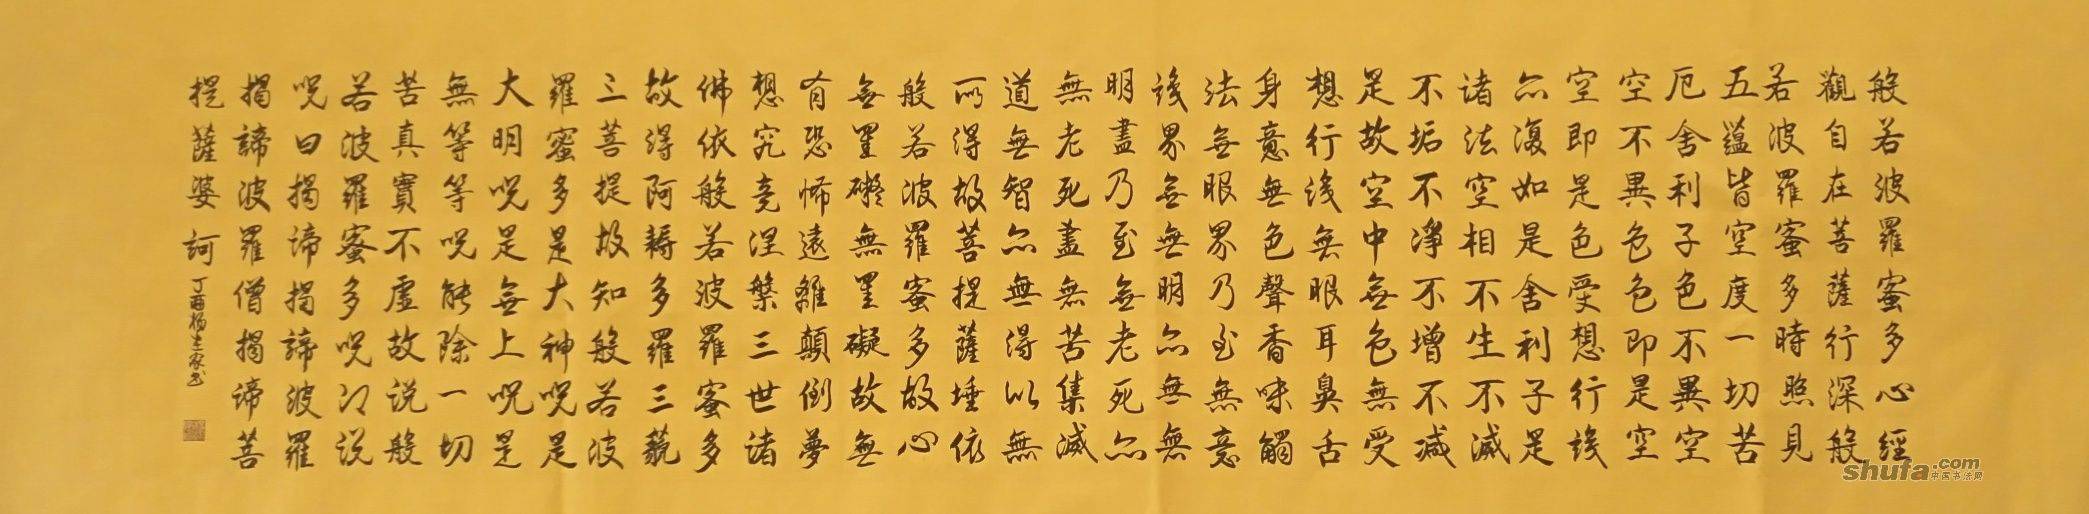 般若波羅蜜多心經
觀自在菩薩行深般
若波羅蜜多時照見
五蘊皆空度一切苦
厄舍利子色不異空
空不異色色即是空
空即是色受想行識
亦復如是舍利子是
諸法空相不生不滅
不垢不淨不增不減
是故空中無色無受
想行識無眼耳鼻舌
身意無色聲香味觸
法無眼界乃至無意
識界無無明亦無無
明盡乃至無老死亦
無老死盡無苦集滅
道無智亦無得以無
所得故菩提薩埵依
般若波羅蜜多故心
無罣礙無罣礙故無
有恐怖遠離顛倒夢
想究竟涅槃三世諸
佛依般若波羅蜜多
故得阿耨多羅三藐
三菩提故知般若波
羅蜜多是大神咒是
大明咒是無上咒是
無等等咒能除一切
苦真實不虛故说般
若波羅蜜多咒即说
咒曰揭諦揭諦波羅
揭諦波羅僧揭諦菩
提薩婆訶
丁酉杨
shufa.com
中国书法网